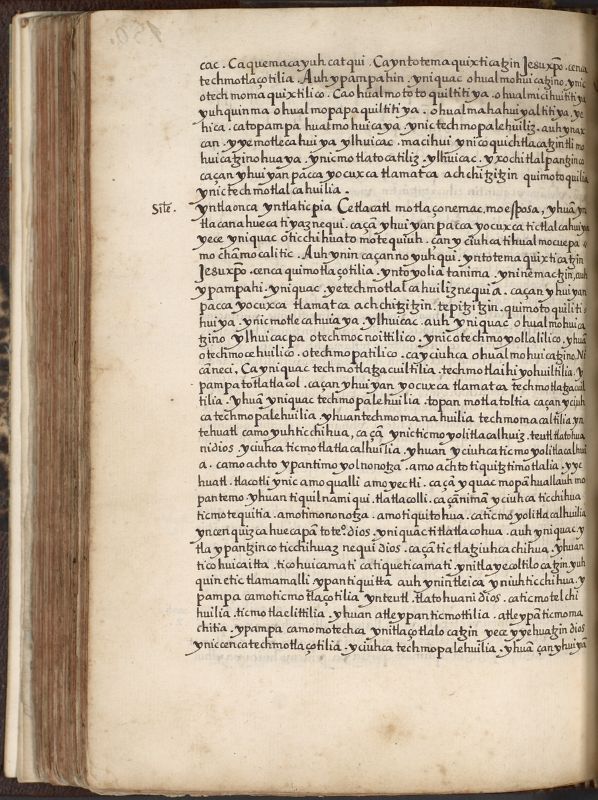 cac. Ca quemaca yuhcatqui. Ca yntotemaquixticatzin Jesu xp̄o. cenca
techmotlaçotilia. Auh ypampa hin. yniquac ohualmohuicatzino. ynic
otechmomaquixtilico. Cao hualmototoquiltitiya. ohualmicihuititiya
yuhquinma ohualmopapaquiltitiya. ohualmahahuiyaltitiya, ye
hica. catopampa hualmohuicaya. ynic techmopalehuiliz. auh ynax
can. yyemotlecahuiya ylhuicac. macihui ynicoquichtlacatzintli mo
huicatzinohuaya. ynicmotlatocatiliz ylhuicac. yxochitlalpantzinco
caçan yhuiyan pacca yocuxca tlamatca achchitzitzin quimotoquilia
ynic techm̄otlalcahuilia.
Siłe. yntlaonca yntlaticpia Cetlacatl motlaçonemac. mo esposa, yhuā yn
tlacanahuecatiyaznequi. caçā yhuiyan pacca yocuxca tictlalcahuiya
yece yniquac ōticchihuato motequiuh. can yciuhca tihualmocuepa
mochāmocalitic. Auh ynin caçanno yuhqui. yntotemaquixticatzin
Jesu xp̄o. cenca quimotlaçotilia. yntoyolia tanima. yninemactzin, auh
ypampahi. yniquac yetechmotlalcahuiliznequia. caçan yhuiyan
pacca yocuxca tlamatca achchitzitzin. tepitzitzin. quimotoquiliti
huiya. ynicmotlecahuiaya. ylhuicac. auh yniquac ohualmohuica
tzino ylhuicacpa otechmocnoittilico. ynic otechmoyollalilico. yhuā
otechmocehuilico. otechmopatilico. ca yciuhca ohualmohuicatzino. Ni
cā neci, Ca yniquac techmotlatzacuiltilia. techmotlaihiyohuiltilia. y
pampa totlatlacol. caçan yhuiyan yocuxca tlamatca techmotlatzacuil
tilia. yhuā yniquac techmopalehuilia. topan motlatoltia caçan yciuh
ca techmopalehuilia. yhuan techmomanahuilia techmomacaltilia yn
tehuatl camo yuhticchihua, caçā ynicticmoyolitlacalhuiz. teutl tlatohua
ni dios. yciuhca ticmotlatlacalhuilia. yhuan yciuhca ticmoyolitlacalhui
a. camo achto ypan timoyolnonotza. amo achto tiquitztimotlalia. yye
huatl. tlacotli ynic amo qualli amo yectli. caçā yquac mopā huallauh mo
pantemo yhuan tiquilnamiqui. tlatlacolli. caçā nimā yciuhca ticchihua
ticmotequitia. amo timononotza. amo tiquitohua. ca ticmoyolitlacalhuilia
yncenquizcahuecapā toteº. dios. yniquac titlatlacohua. auh yniquac. y
tla ypantzinco ticchihuaz nequi dios. caçā tictlatziuhcachihua. yhuan
ticohuicaitta. ticohuicamati catiqueticamati. ynitlayecoltilocatzin, yuh
quin etic tlamamalli ypan tiquitta auh ynintleica yniuh ticchihua. y
pampa camo ticmotlaçotilia ynteutl. tlatohuani dios. ca ticmotelchi
huilia. ticmotlaelittilia. yhuan atle ypan ticmottilia. atle ypā ticmoma
chitia. ypampa camo motechca ynitlaçotlalocatzin yece yyehuatzin dios
ynic cenca techmotlaçotilia. yciuhca techmopalehuilia. yhuā çan yhuiyā